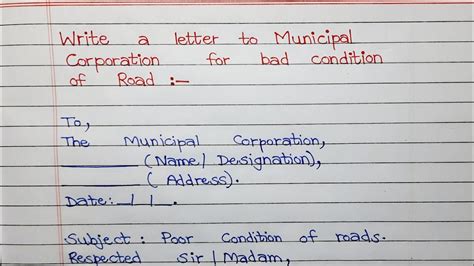 Write a letter to Municipal
Corporation for bad condition
of Road :-
To,
The Municipal Corporation,
________ (Name/ Designation),
________ ( Address).
Date: _/_/_.
Subject : Poor Condition of roads.
Respected Sir / Madam,